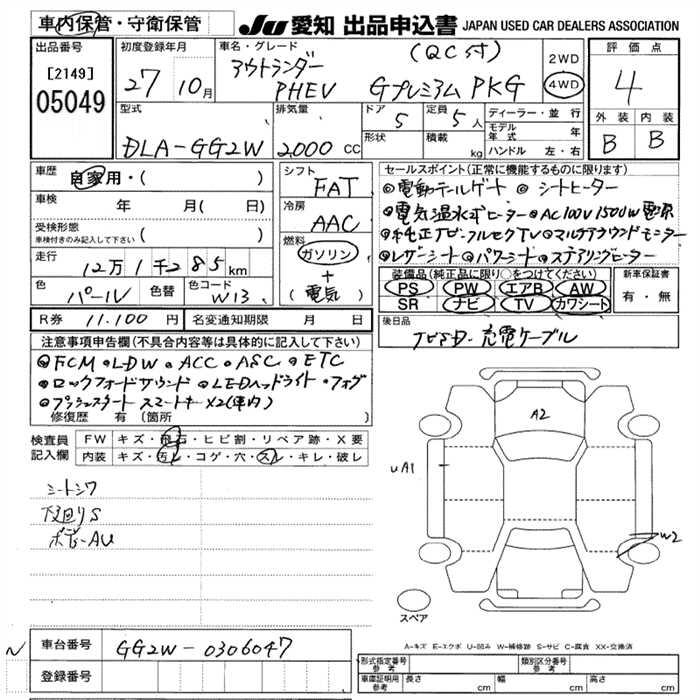 車内保管・守衛保管
JU 愛知 出品申込書 JAPAN USED CAR DEALERS ASSOCIATION
出品番号
[2149]
05049
初度登録年月
27 10月
車名・グレード
(QC付)
アウトランダー
PHEV Gプレミアム PKG
2WD
4WD
評価点
4
外装 内装
B B
型式
DLA-GG2W
排気量
2,000 CC
ドア 5
形状
定員 5人
積載 kg
ディーラー・並行
モデル年式 年
ハンドル 左・右
車歴
自家用・( )
車検 年 月( 日)
受検形態
車検付きのみ記入して下さい ( )
走行
12万1千285km
色 パール 色替 色コード W13
シフト
FAT
冷房
AAC
燃料
ガソリン
+
(電気)
セールスポイント(正常に機能するものに限ります)
◎電動テールゲート ◎シートヒーター
◎電気温水式ヒーター ◎AC100V1500W電源
◎純正ナビ・フルセグTV ◎マルチアラウンドモニター
◎レザーシート ◎パワーシート ◎ステアリングヒーター
装備品(純正品に限り○をつけてください)
PS PW エアB AW
SR ナビ TV カワシート
新車保証書
有・無
後日品
ナビSD・充電ケーブル
R券 11,100円 名変通知期限 月 日
注意事項申告欄(不具合内容等は具体的に記入して下さい)
◎FCM ◎LDW ◎ACC ◎ASC ◎ETC
◎ロックフォードサウンド ◎LEDヘッドライト・フォグ
◎プッシュスタート スマートキーX2(車内)
修復歴 有 (箇所 )
検査員記入欄
FW キズ・飛石・ヒビ割・リペア跡・X要
内装 キズ・汚レ・コゲ・穴・スレ・キレ・破レ
シートシワ
下回りS
ボデーAU
A2
UA1
W2
スペア
A-キズ E-エクボ U-凹み W-補修跡 S-サビ C-腐食 XX-交換済
N
車台番号 GG2W-0306047
登録番号
形式指定番号 参考
類別区分番号 参考
車庫証明用 参考 長さ cm 幅 cm 高さ cm